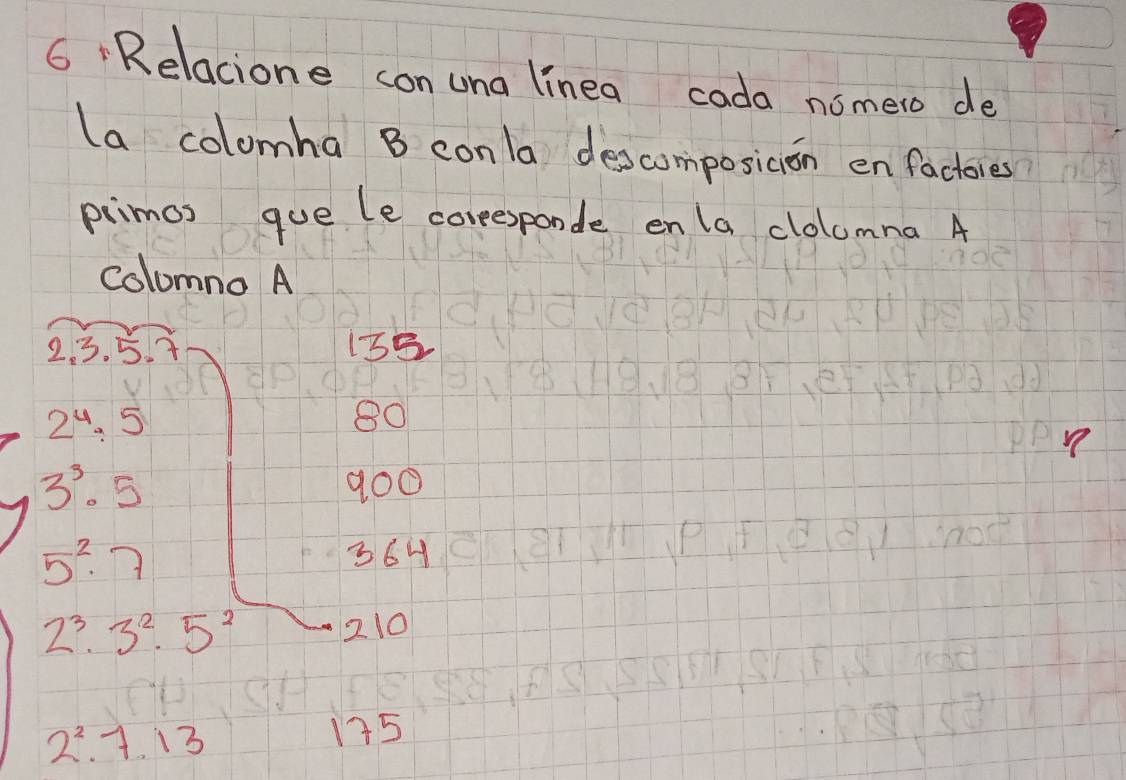 6 Relacione con una línea cada número de
la columna B con la descomposición en factores
primos que le correesponde en la clolumna A
Columna A
2.3.5.7 135
2⁴.5 80
3³.5 900
5².7 364
2³.3².5² 210
2².7.13 175